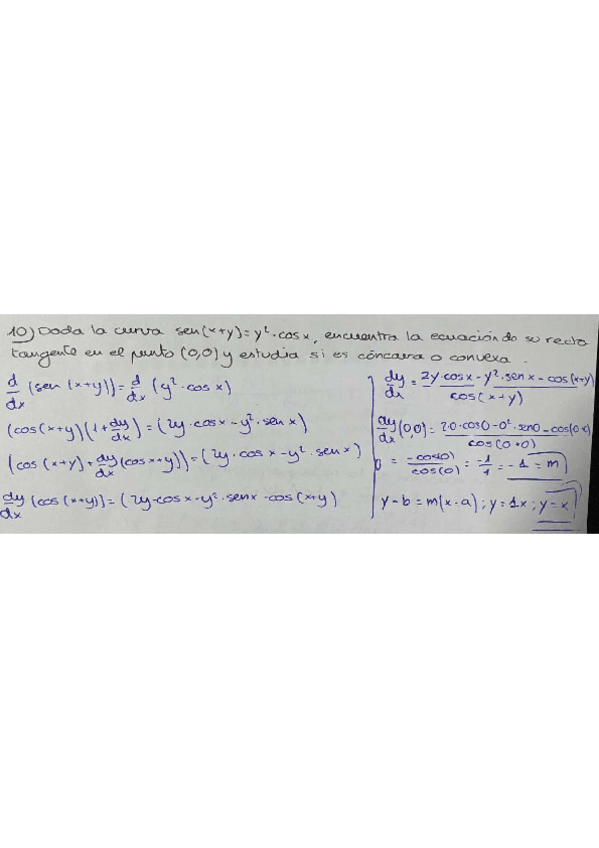 10) Dada la curva sen(x+y)=y²·cosx, encuentra la ecuación de su recta
tangente en el punto (0,0) y estudia si es cóncava o convexa.
d/dx (sen(x+y))=d/dx (y²·cosx)
(cos(x+y)(1+dy/dx)=(2y·cosx-y²·senx)
(cos(x+y)+dy/dx(cosx+y))=(2y·cosx-y²·senx)
dy/dx (cos(x+y)]=(2y·cosx-y²·senx-cos(x+y)
dy/dx = 2y·cosx-y²·senx-cos(x+y) / cos(x+y)
dy/dx (0,0)= 2·0·cos0-0²·sen0-cos(0+0) / cos(0+0)
= -cos(0) / cos(0) = -1/1 = -1 = m
y-b=m(x-a); y=1x; y=x